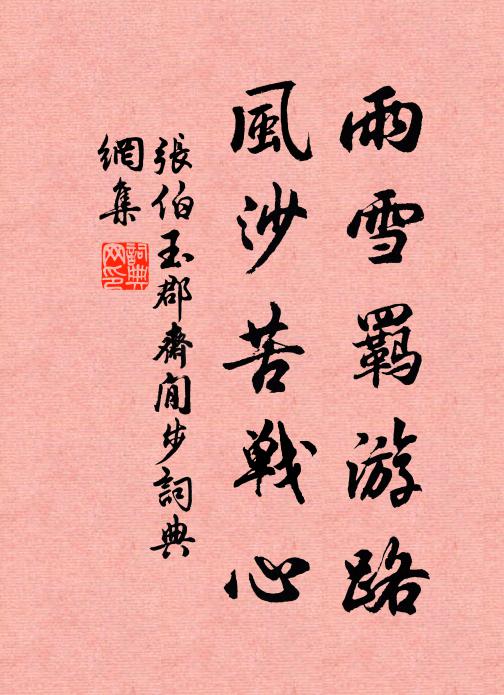 雨雪羈游路
風沙苦戰心
張伯玉郡齋閒步詞典
網集
詞典網印